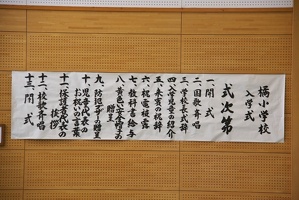 橘小学校
入学式
式次第
一、開式
二、国歌斉唱
三、学校長式辞
四、入学児童の紹介
五、来賓の祝辞
六、祝電披露
七、教科書給与
八、黄色い安全帽子の贈呈
九、防犯ブザーの贈呈
十、児童代表のお祝いの言葉
十一、保護者代表の挨拶
十二、校歌斉唱
十三、閉式